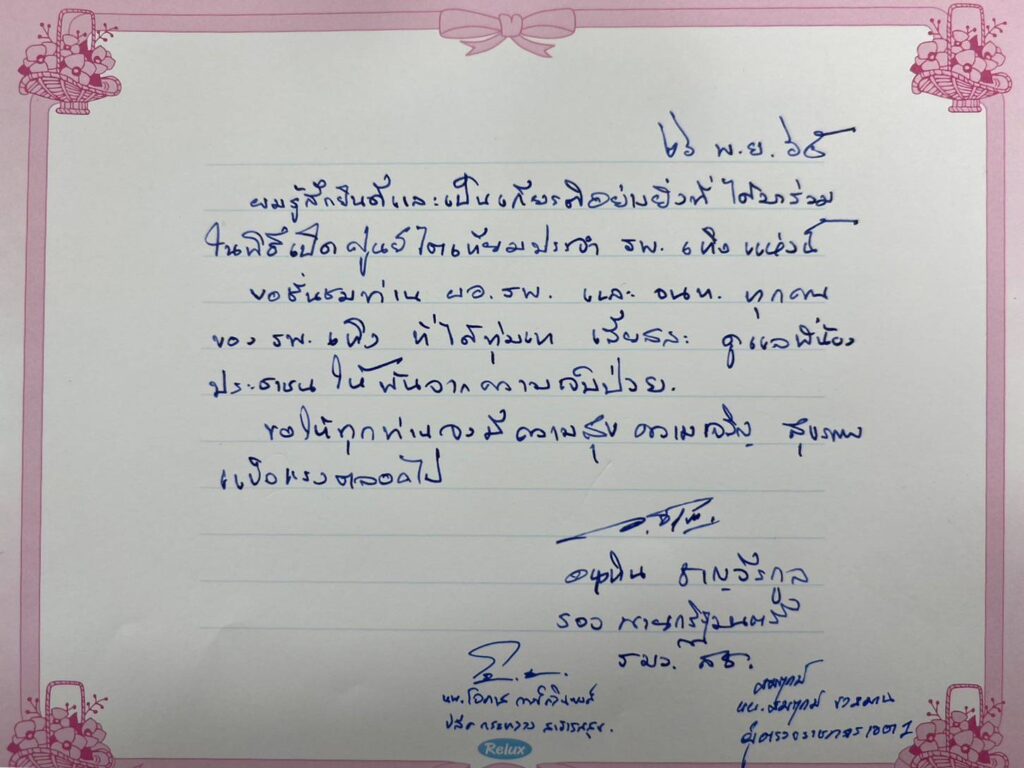 ๒๖ พ.ย. ๖๕
ผมรู้สึกยินดีและเป็นเกียรติอย่างยิ่งที่ ได้มาร่วม
ในพิธีเปิด ศูนย์ไตเทียมประจำ รพ. เทิง แห่งนี้
ขอชื่นชมท่าน ผอ. รพ. และ จนท. ทุกคน
ของ รพ. เทิง ที่ได้ทุ่มเท เสียสละ ดูแลพี่น้อง
ประชาชน ให้พ้นจากความเจ็บป่วย.
ขอให้ทุกท่านจงมีความสุข ความเจริญ สุขภาพ
แข็งแรงตลอดไป
อนุทิน ชาญวีรกูล
รองนายกรัฐมนตรี
รมว. สธ.
นพ. โอภาส การย์กวินพงศ์
ปลัดกระทรวงสาธารณสุข.
นพ.
ผู้ตรวจราชการเขต 1
Relux